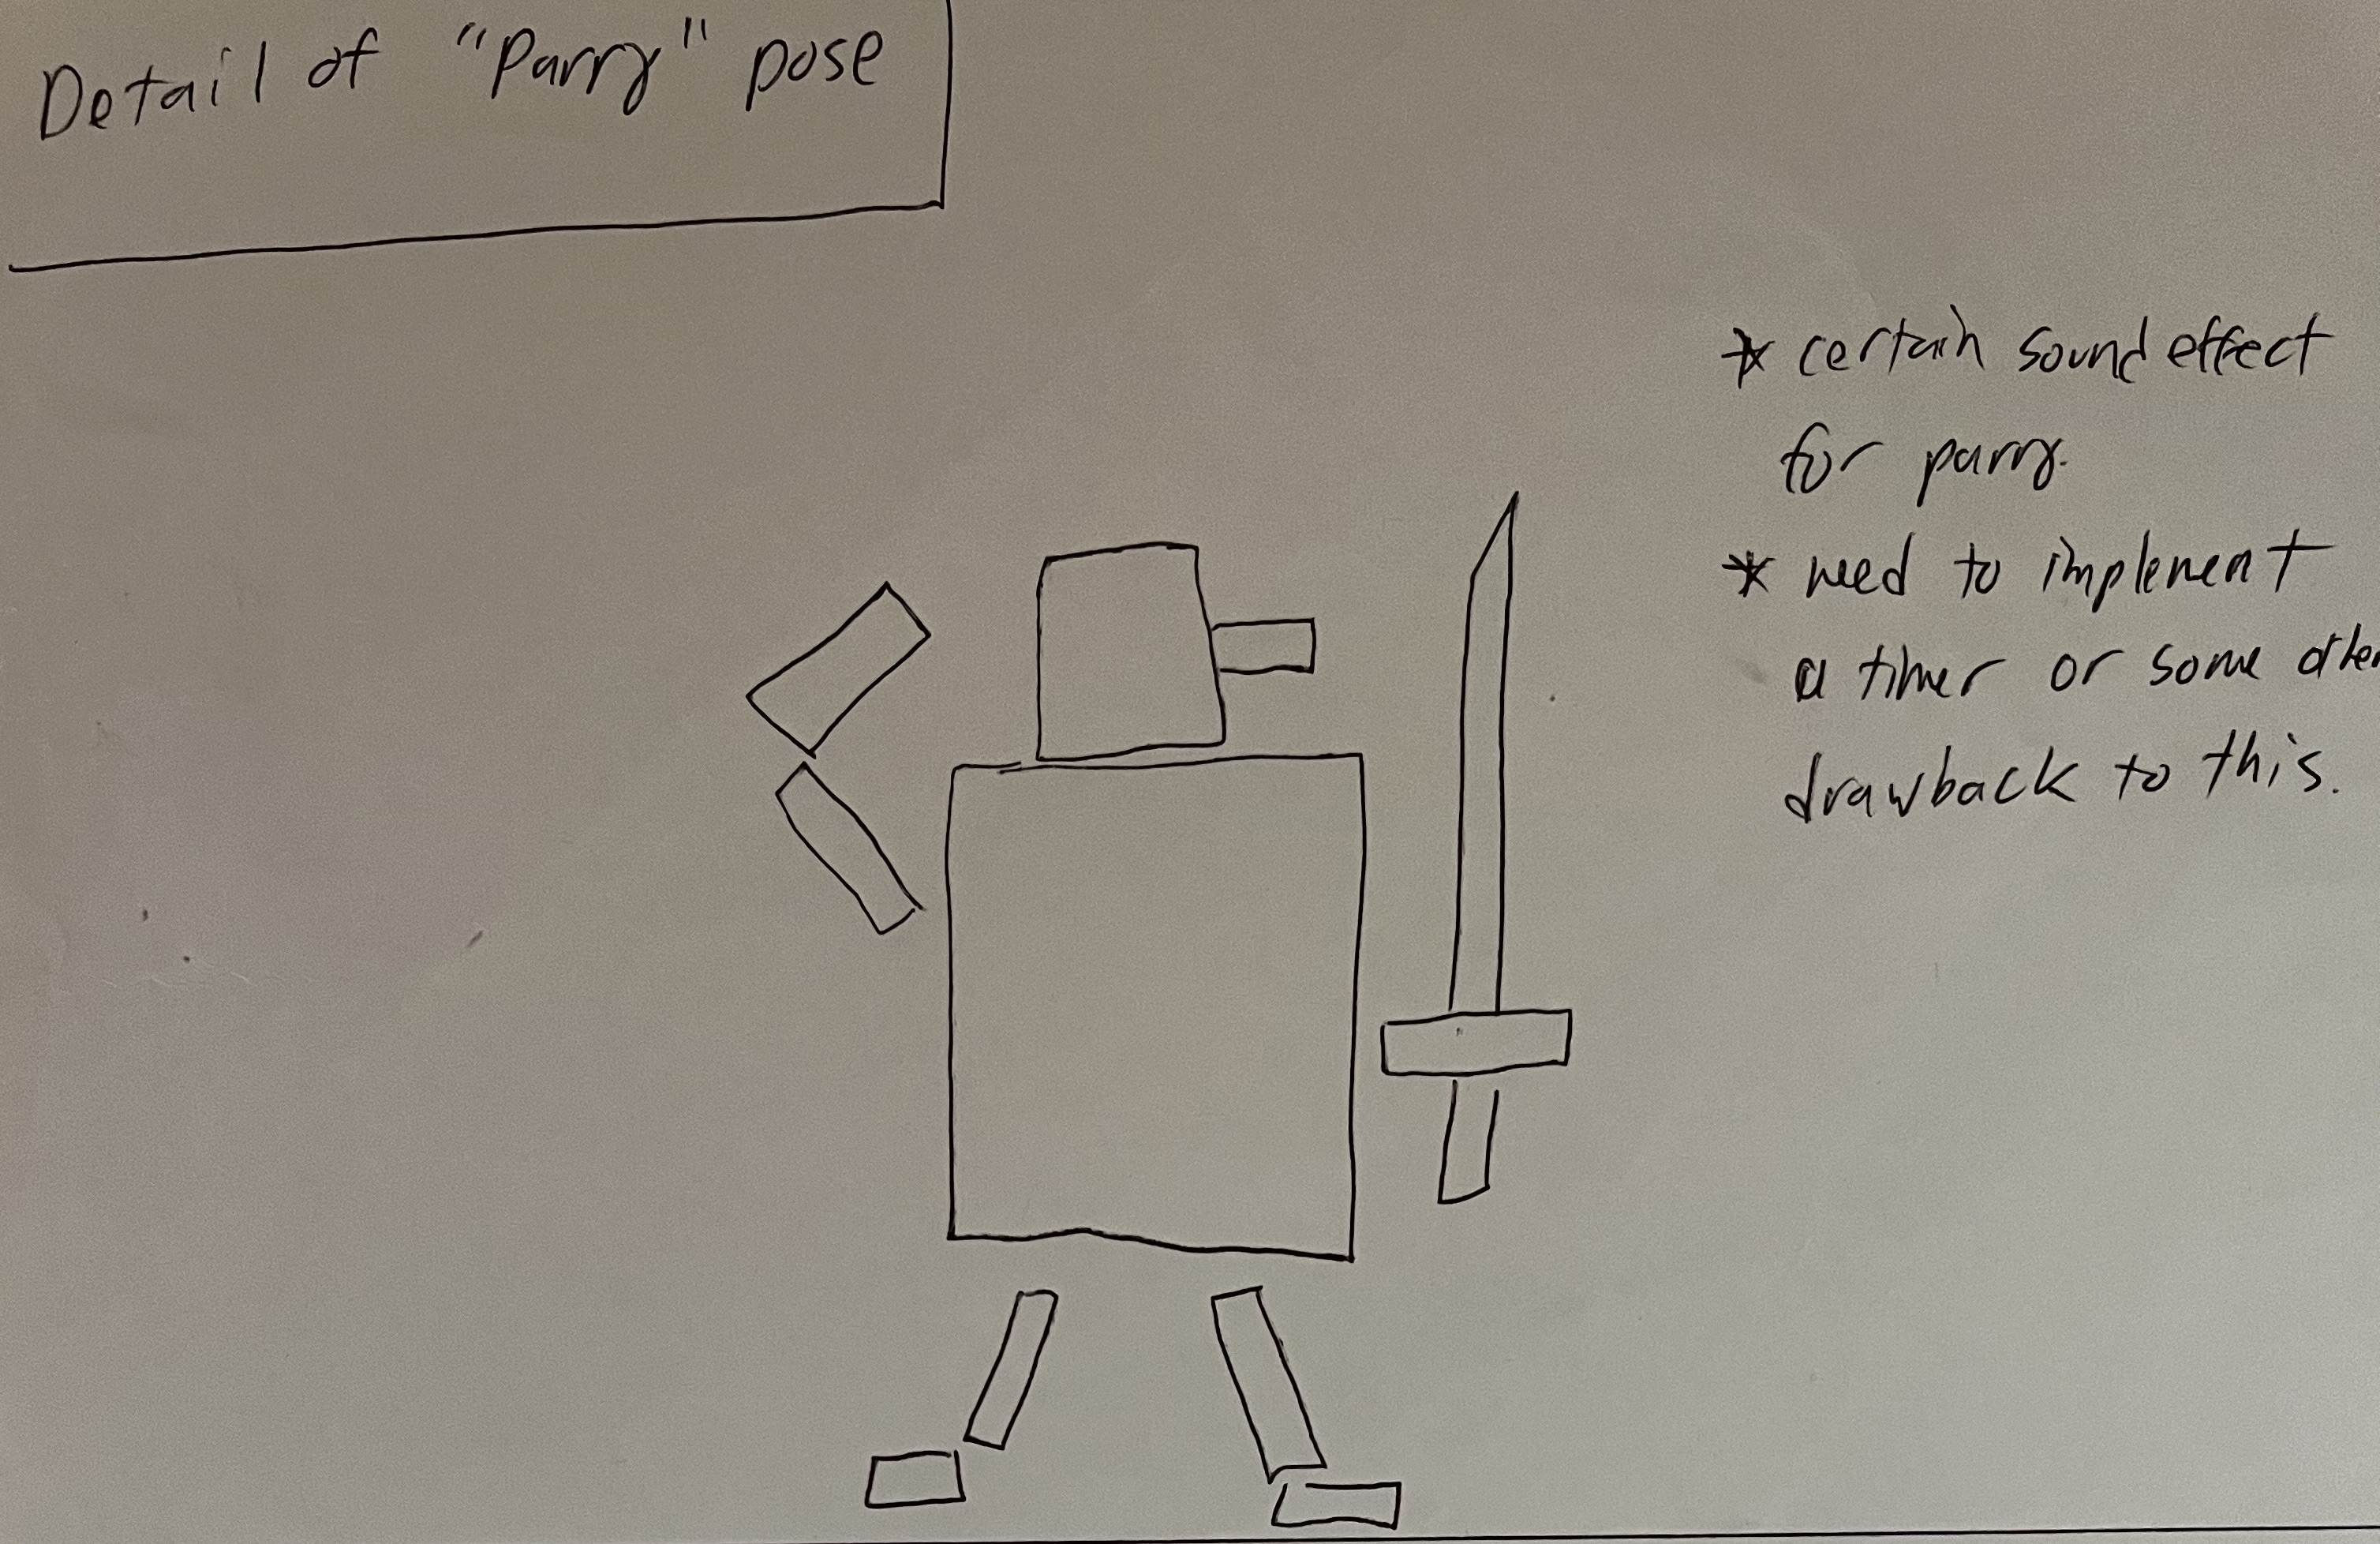 Detail of "Parry" pose
* certain sound effect
for parry.
* need to implement
a timer or some other
drawback to this.